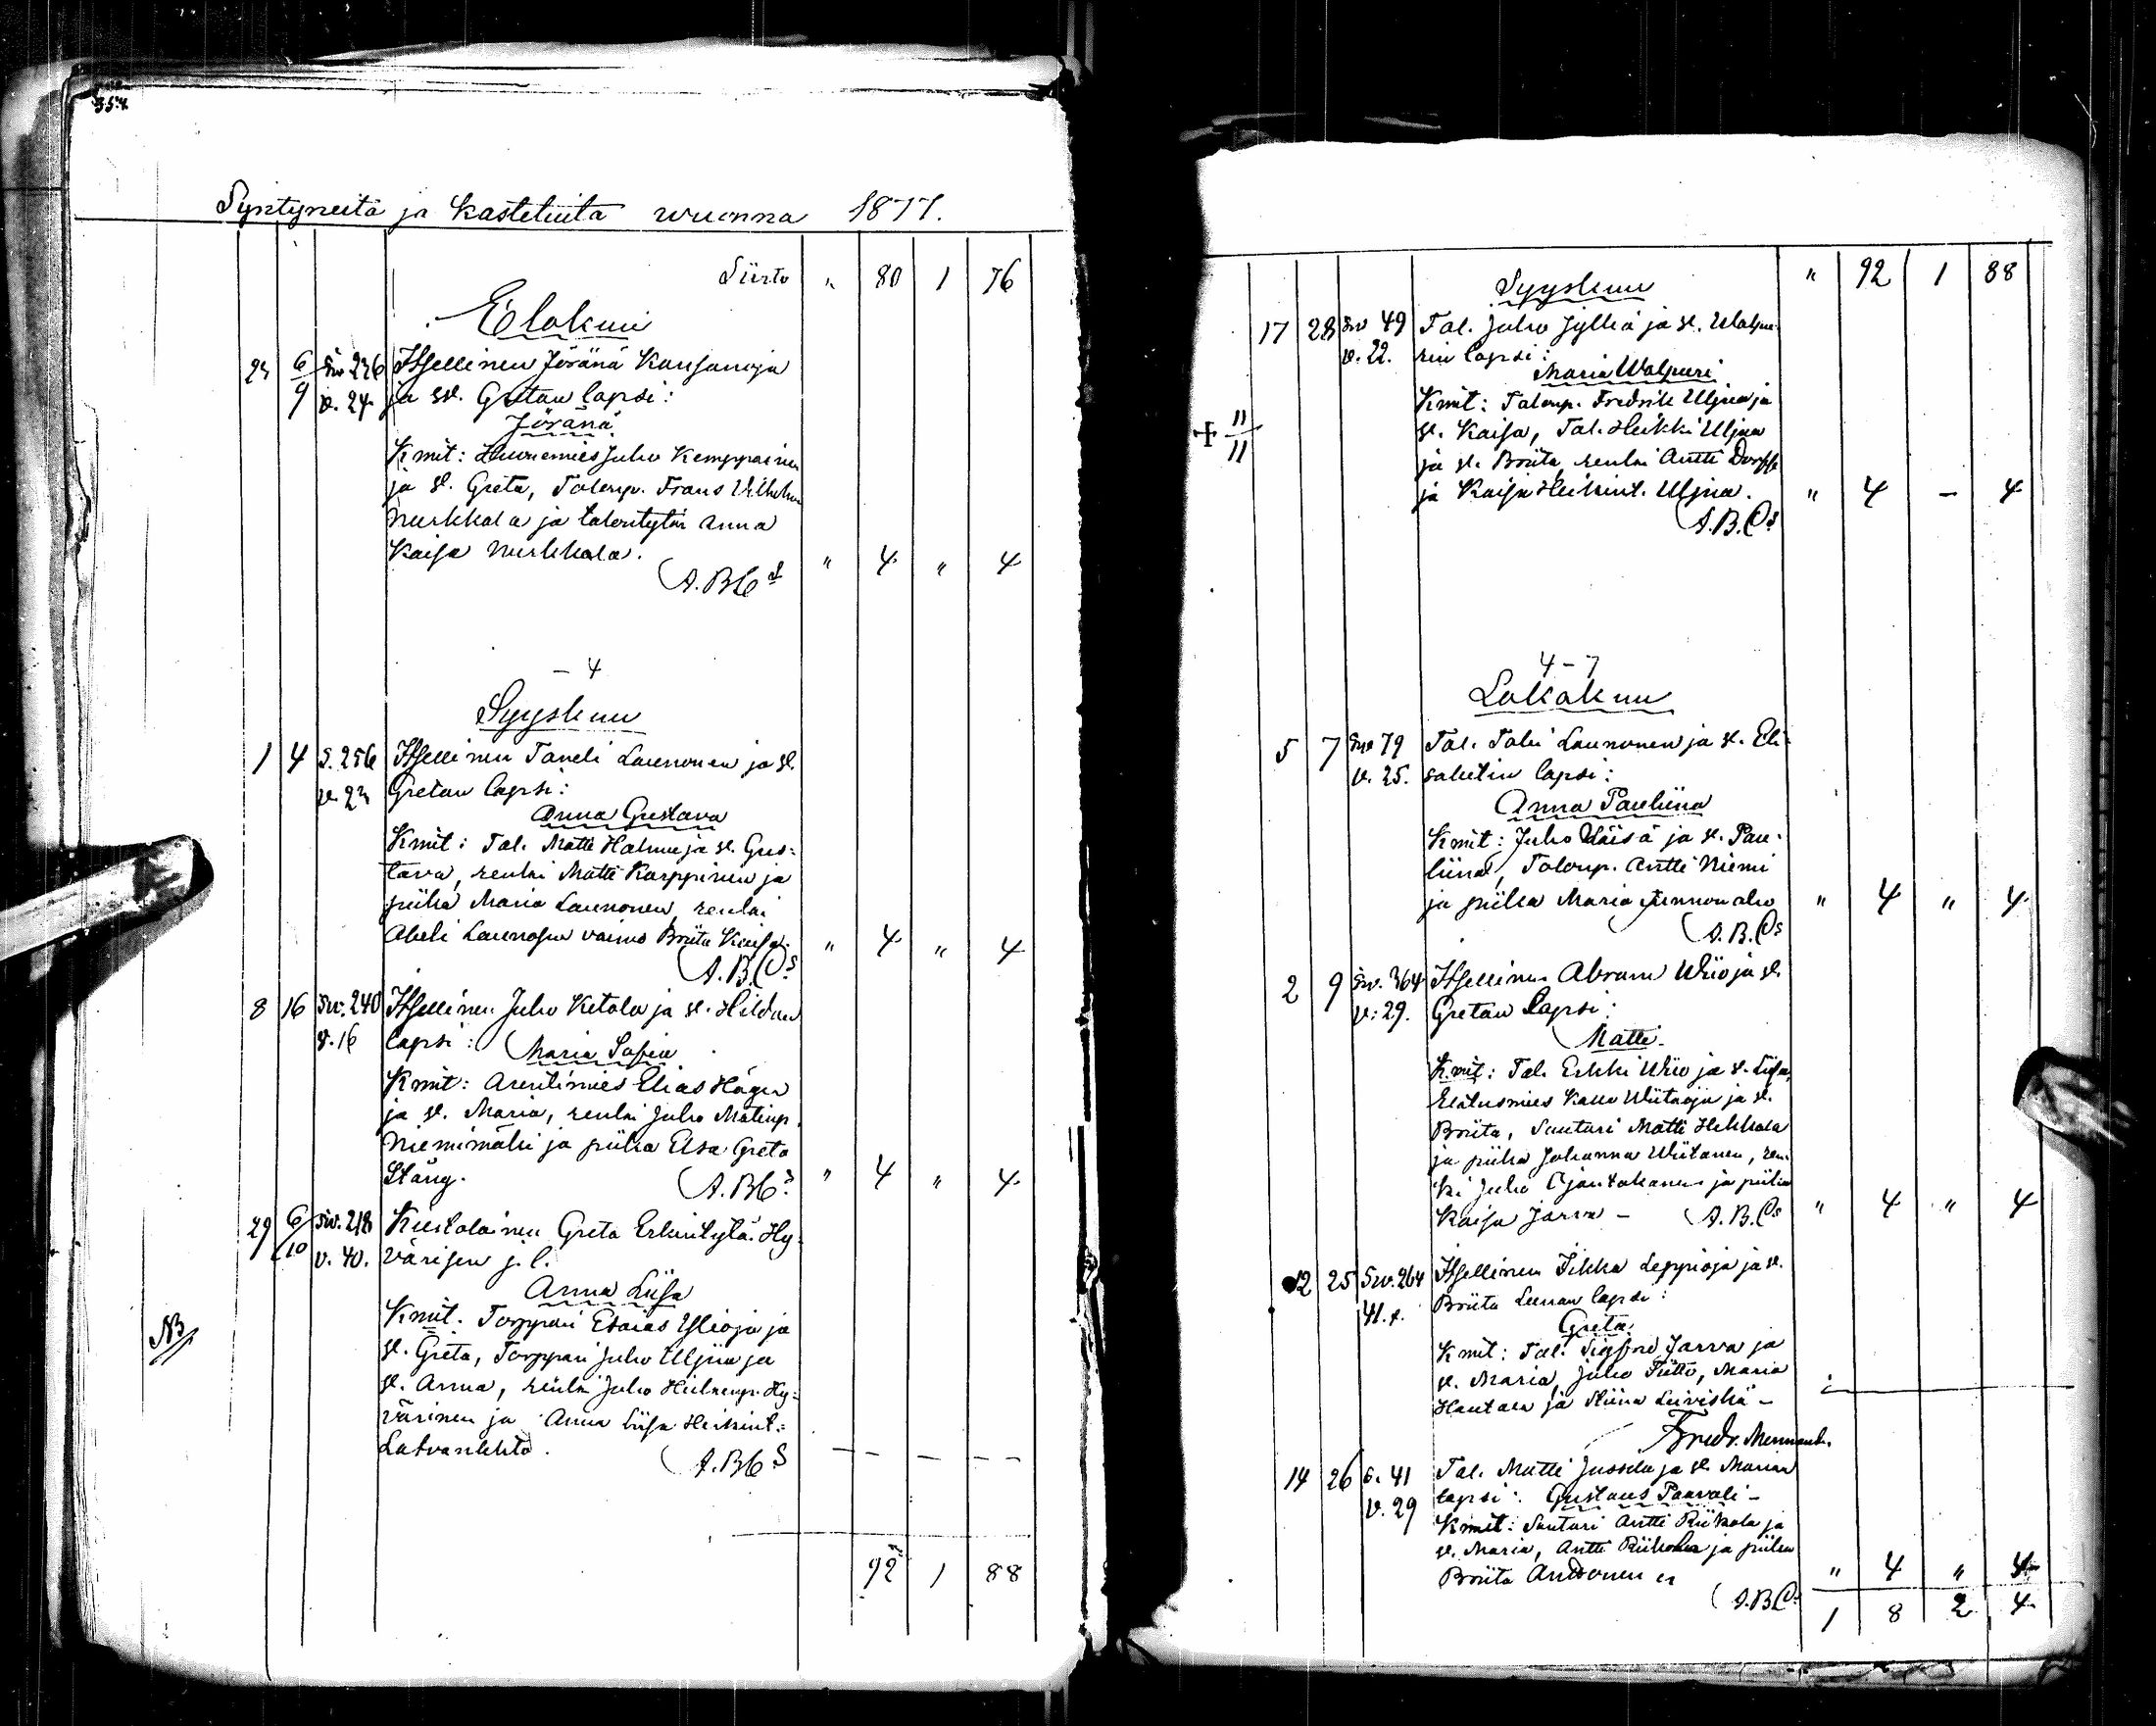 354
Syntyneitä ja Kastetuita wuonna 1877.
Siirto " 80 1 76
Elokuu
23 6/9 Siv 226 Itsellinen Jöränä Kansanoja
v. 24. ja vl. Gretan lapsi:
Jöränä
Kmit: Huonemies Juho Kemppainen
ja vl. Greta, Talonp. Frans Vilhelm
Nurkkala ja talontytär Anna
Kaisa Nurkkala. " 4 " 4
A.B.C s
- 4
Syyskuu
1 4 S. 256 Itsellinen Taneli Launonen ja vl.
v. 23 Gretan lapsi:
Anna Gustava
Kmit: Tal. Matti Halme ja vl. Gus-
tava, renki Matti Karppinen ja
piika Maria Launonen, renki
Abeli Launosen vaimo Briita Kaisa. " 4 " 4
A.B.C s
8 16 Siv. 240 Itsellinen Juho Ketola ja vl. Hildan
v. 16 lapsi: Maria Sofia
Kmit: Arentimies Elias Häger
ja vl. Maria, renki Juho Matinp.
Niemimäki ja piika Elsa Greta
Stäng. " 4 " 4
A.B.C s
29 6/10 Siv. 218 Greta Erkintytä. Hy-
v. 40. värisen j. l.
Anna Liisa
Kmit. Torppari Esaias Ylioja ja
vl. Greta, Torppari Juho Uljua ja
vl. Anna, renki Juho Hy-
värinen ja Anna Liisa Heikint.
NB
Latvanlehto. - - - -
A.B.C s
92 1 88
Syyskuu " 92 1 88
17 28 Siv 49 Tal. Juho Jylhä ja vl. Walpu-
v. 22. rin lapsi:
Maria Walpuri
Kmit: Talonp. Fredrik Uljua ja
† 11/11 vl. Kaisa, Tal. Heikki Uljua
ja vl. Briita, renki Antti
ja Kaisa Heikint. Uljua. " 4 - 4
A.B.C s
4 - 7
Lokakuu
5 7 Siv 79 Tal. Launonen ja vl. Eli-
v. 25. sabetin lapsi:
Anna Pauliina
Kmit: Juho Väisä ja vl. Pau-
liina, Talonp. Antti Niemi
ja piika Maria Junnonaho " 4 " 4
A.B.C s
2 9 Siv. 364 Itsellinen Abram Wiio ja vl.
v: 29. Gretan lapsi:
Matti
Kmit: Tal. Erkki Wiio ja vl. Liisa,
Elätusmies Kalle Wiitaoja ja vl.
Briita, Suutari Matti Hekkala
ja piika Johanna Wiitanen, ren-
ki Juho Ojantakanen ja piika
Kaisa Jarva - A.B.C s " 4 " 4
12 25 Siv. 264 Itsellinen Iikka Leppioja ja vl.
41. v. Briita Leenan lapsi:
Greta
Kmit: Tal. Sigfrid Jarva ja
vl. Maria, Juho Tutto, Maria
Hautala ja Stiina Leiviskä -
Fredr. Mennander
14 26 S. 41 Tal. Matti Jussila ja vl. Marian
v. 29 lapsi: Gustaus Paavali -
Kmit: Suutari Antti Riikola ja
vl. Maria, Antti Riikola ja piika
Briita Andonen " 4 " 4
A.B.C s 1 8 2 4